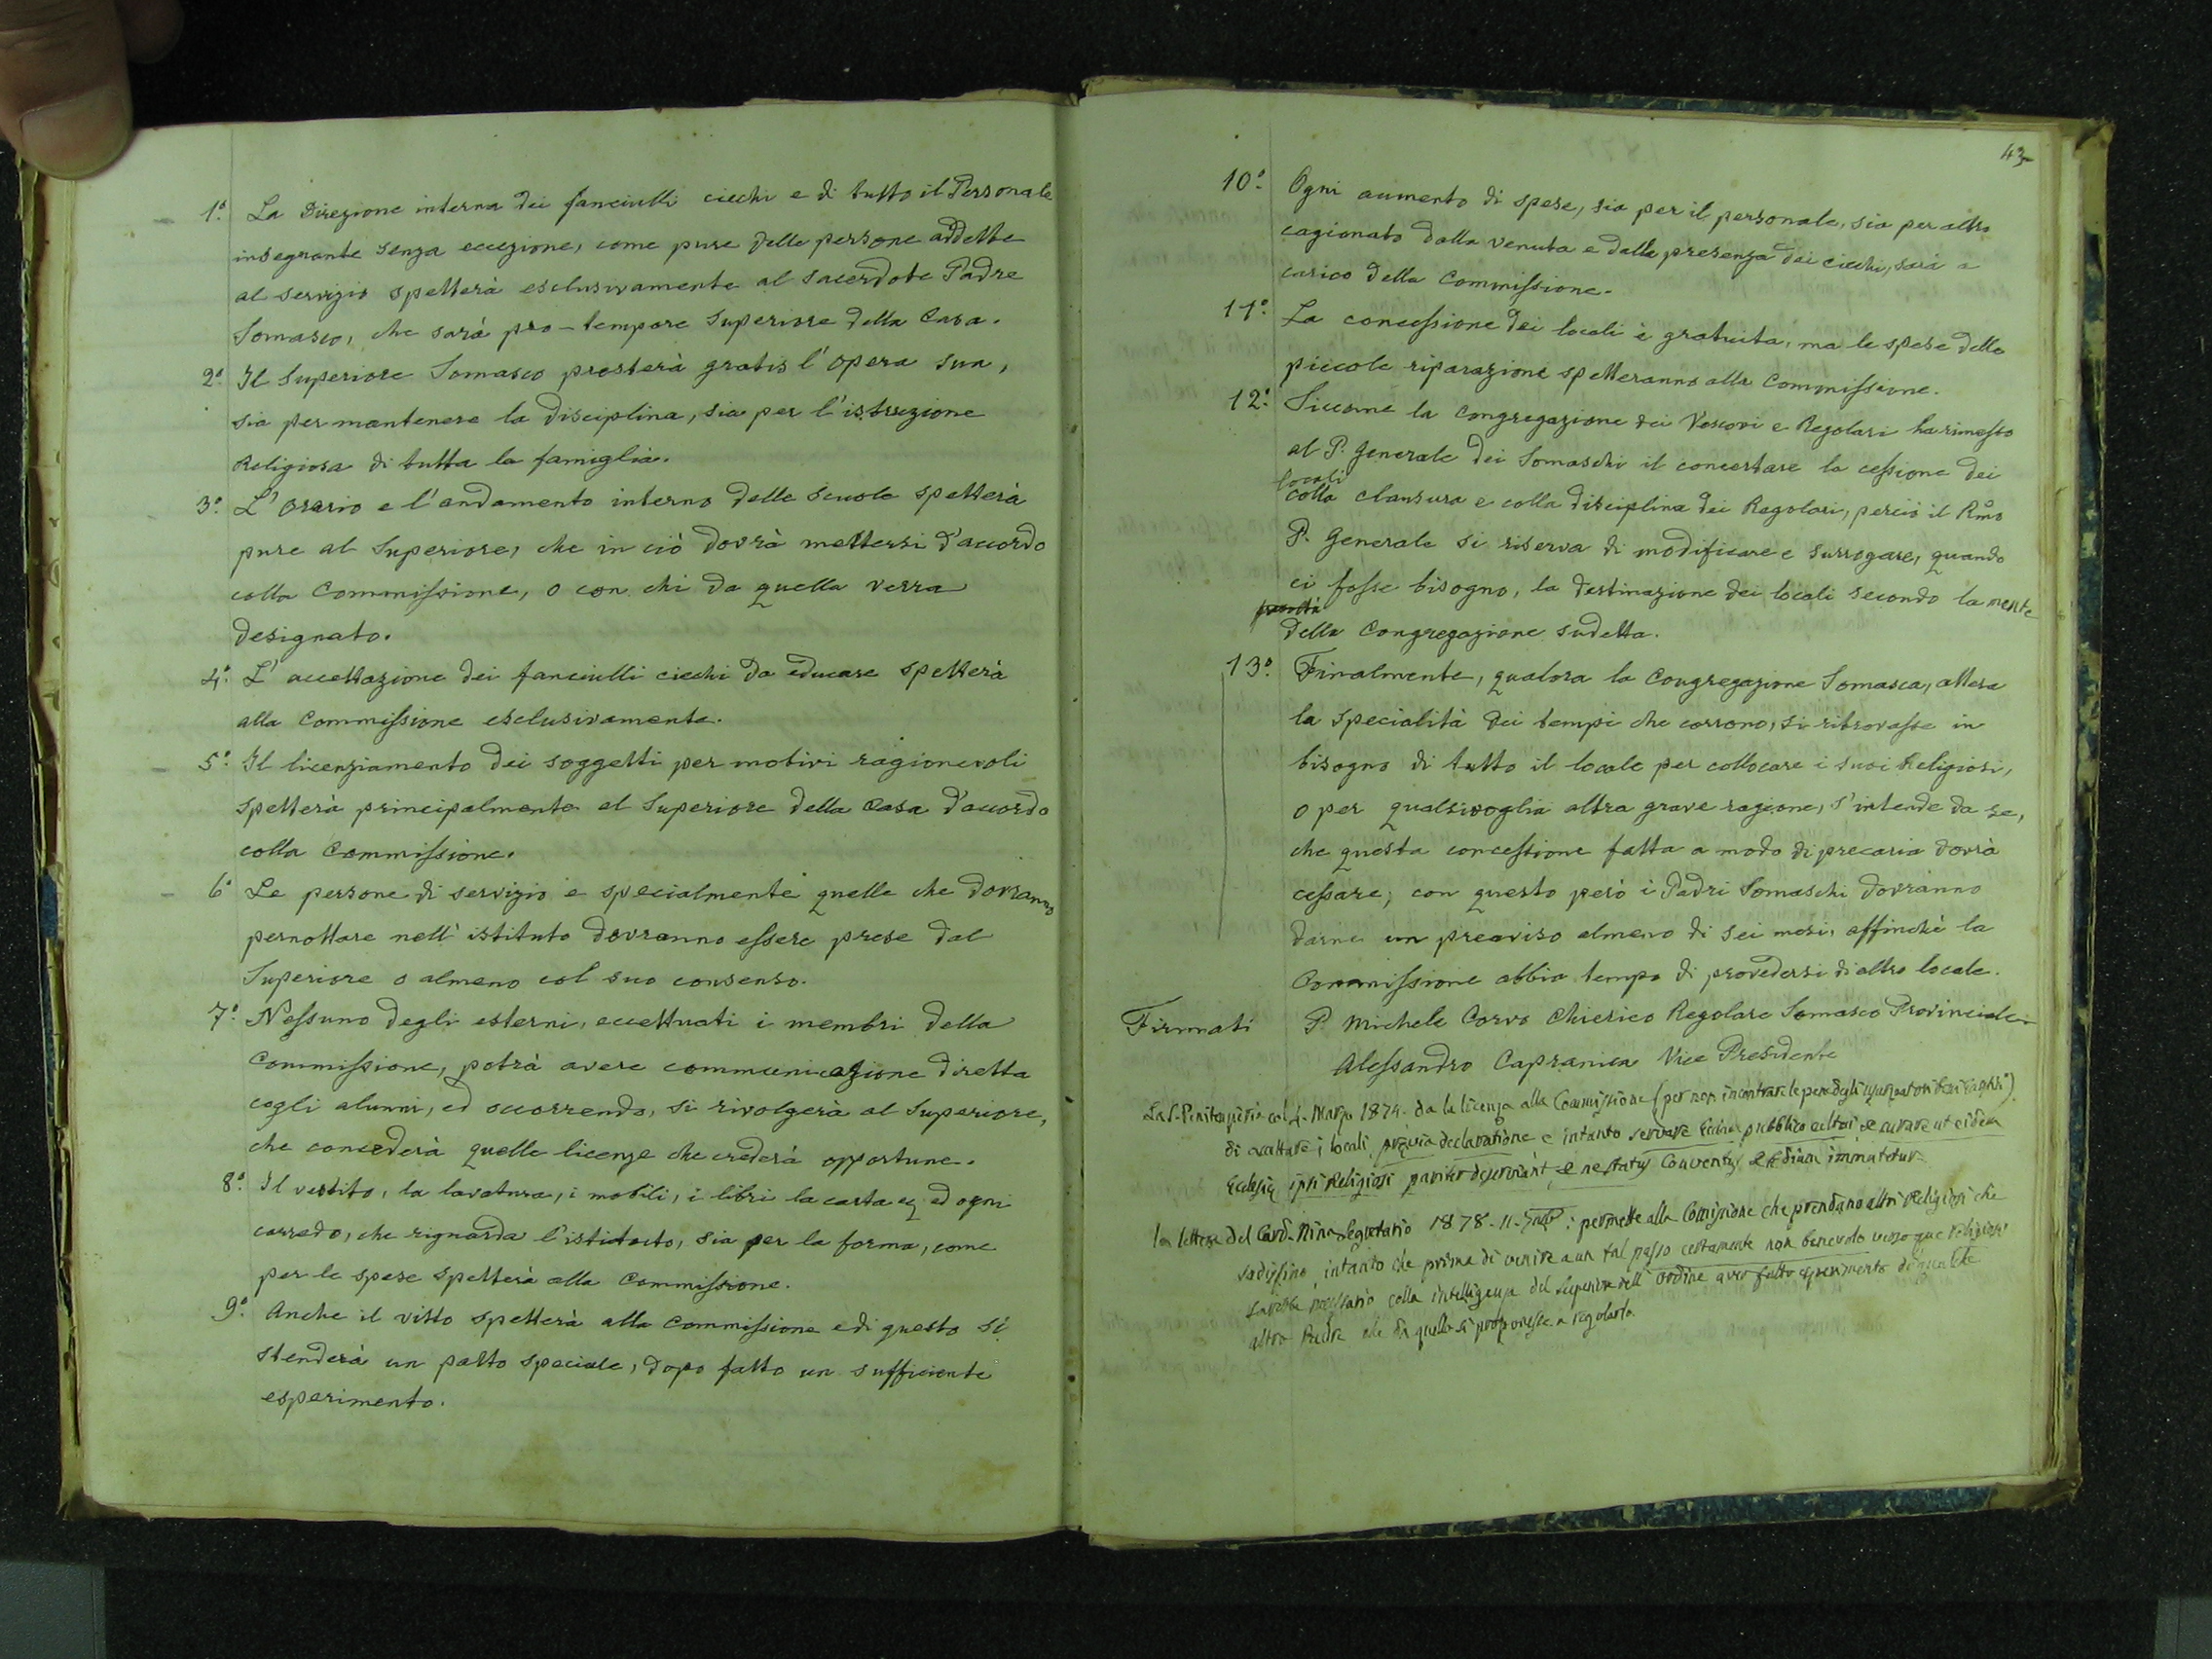 1.° La Direzione interna dei fanciulli ciechi e di tutto il Personale
insegnante senza eccezione, come pure delle persone addette
al servizio spetterà esclusivamente al sacerdote Padre
Somasco, che sarà pro-tempore Superiore della Casa.
2.° Il Superiore Somasco presterà gratis l'opera sua,
sia per mantenere la disciplina, sia per l'istruzione
Religiosa di tutta la famiglia.
3.° L'Orario e l'andamento interno delle scuole spetterà
pure al Superiore, che in ciò dovrà mettersi d'accordo
colla Commissione, o con chi da quella verra
designato.
4.° L'accettazione dei fanciulli ciechi da educare spetterà
alla Commissione esclusivamente.
5.° Il licenziamento dei soggetti per motivi ragionevoli
spetterà principalmente al Superiore della Casa d'accordo
colla Commissione.
6.° Le persone di servizio e specialmente quelle che dovranno
pernottare nell'istituto dovranno essere prese dal
Superiore o almeno col suo consenso.
7.° Nessuno degli esterni, eccettuati i membri della
Commissione, potrà avere communicazione diretta
cogli alunni, ed occorrendo, si rivolgerà al Superiore,
che concederà quelle licenze che crederà opportune.
8.° Il vestito, la lavatura, i mobili, i libri la carta ec ed ogni
corredo, che riguarda l'istituto, sia per la forma, come
per le spese spetterà alla Commissione.
9.° Anche il vitto spetterà alla Commissione e di questo si
stenderà un patto speciale, dopo fatto un sufficiente
esperimento.
43
10.° Ogni aumento di spese, sia per il personale, sia per altro
cagionato dalla venuta e dalla presenza dei ciechi, sarà a
carico della Commissione.
11.° La concessione dei locali è gratuita, ma le spese delle
piccole riparazione spetteranno alla Commissione.
12.° Siccome la Congregazione dei Vescovi e Regolari ha rimesso
al P. Generale dei Somaschi il concertare la cessione dei
locali
colla clausura e colla disciplina dei Regolari, perciò il Rmo
P. Generale si riserva di modificare e surrogare, quando
ci fosse bisogno, la destinazione dei locali secondo la mente
della Congregazione sudetta.
13.° Finalmente, qualora la Congregazione Somasca, attesa
la specialità dei tempi che corrono, si ritrovasse in
bisogno di tutto il locale per collocare i suoi Religiosi,
o per qualsivoglia altra grave ragione, s'intende da se,
che questa concessione fatta a modo di precaria dovrà
cessare; con questo però i Padri Somaschi dovranno
darne un preaviso almeno di sei mesi, affinchè la
Commissione abbia tempo di provedersi di altro locale.
Firmati P. Michele Corvo Chierico Regolare Somasco Provinciale
Alessandro Capranica Vice Presidente
La S. Penitenzieria col 4. Marzo 1874. da la licenza alla Commissione (per non incontrare le pene degli usurpatori beni eccl.si)
di accettare i locali, prævia declaratione e intanto servare pubblico cultui e curare ut eidem
Ecclesiæ ipsi Religiosi pariter deserviant, e ne status Conventus Ædium immutetur
la lettera del Card. Nina Segretario 1878-11-7mbre: permette alla Comissione che prendano altri Religiosi che
sodisfino, intanto che prima di venire a un tal passo certamente non benevolo verso que religiosi
sarebbe necessario colla intelligenza del Superiore dell'Ordine aver fatto esperimento di qualche
altro Padre che da quello si proponesse a regolarlo.